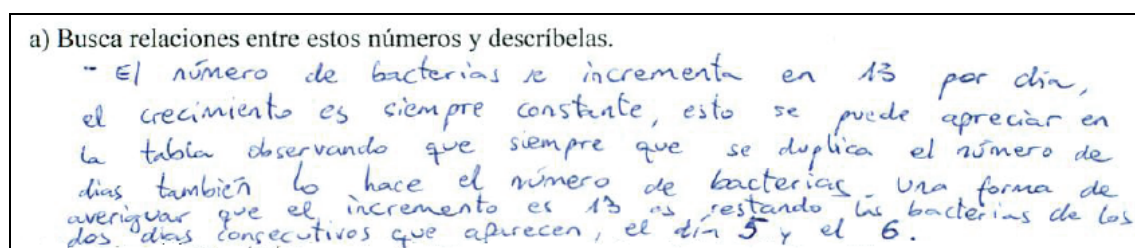 a) Busca relaciones entre estos números y descríbelas.
- El número de bacterias se incrementa en 13 por día,
el crecimiento es siempre constante, esto se puede apreciar en
la tabla observando que siempre que se duplica el número de
dias también lo hace el número de bacterias. Una forma de
averiguar que el incremento es 13 es restando las bacterias de los
dos dias consecutivos que aparecen, el día 5 y el 6.